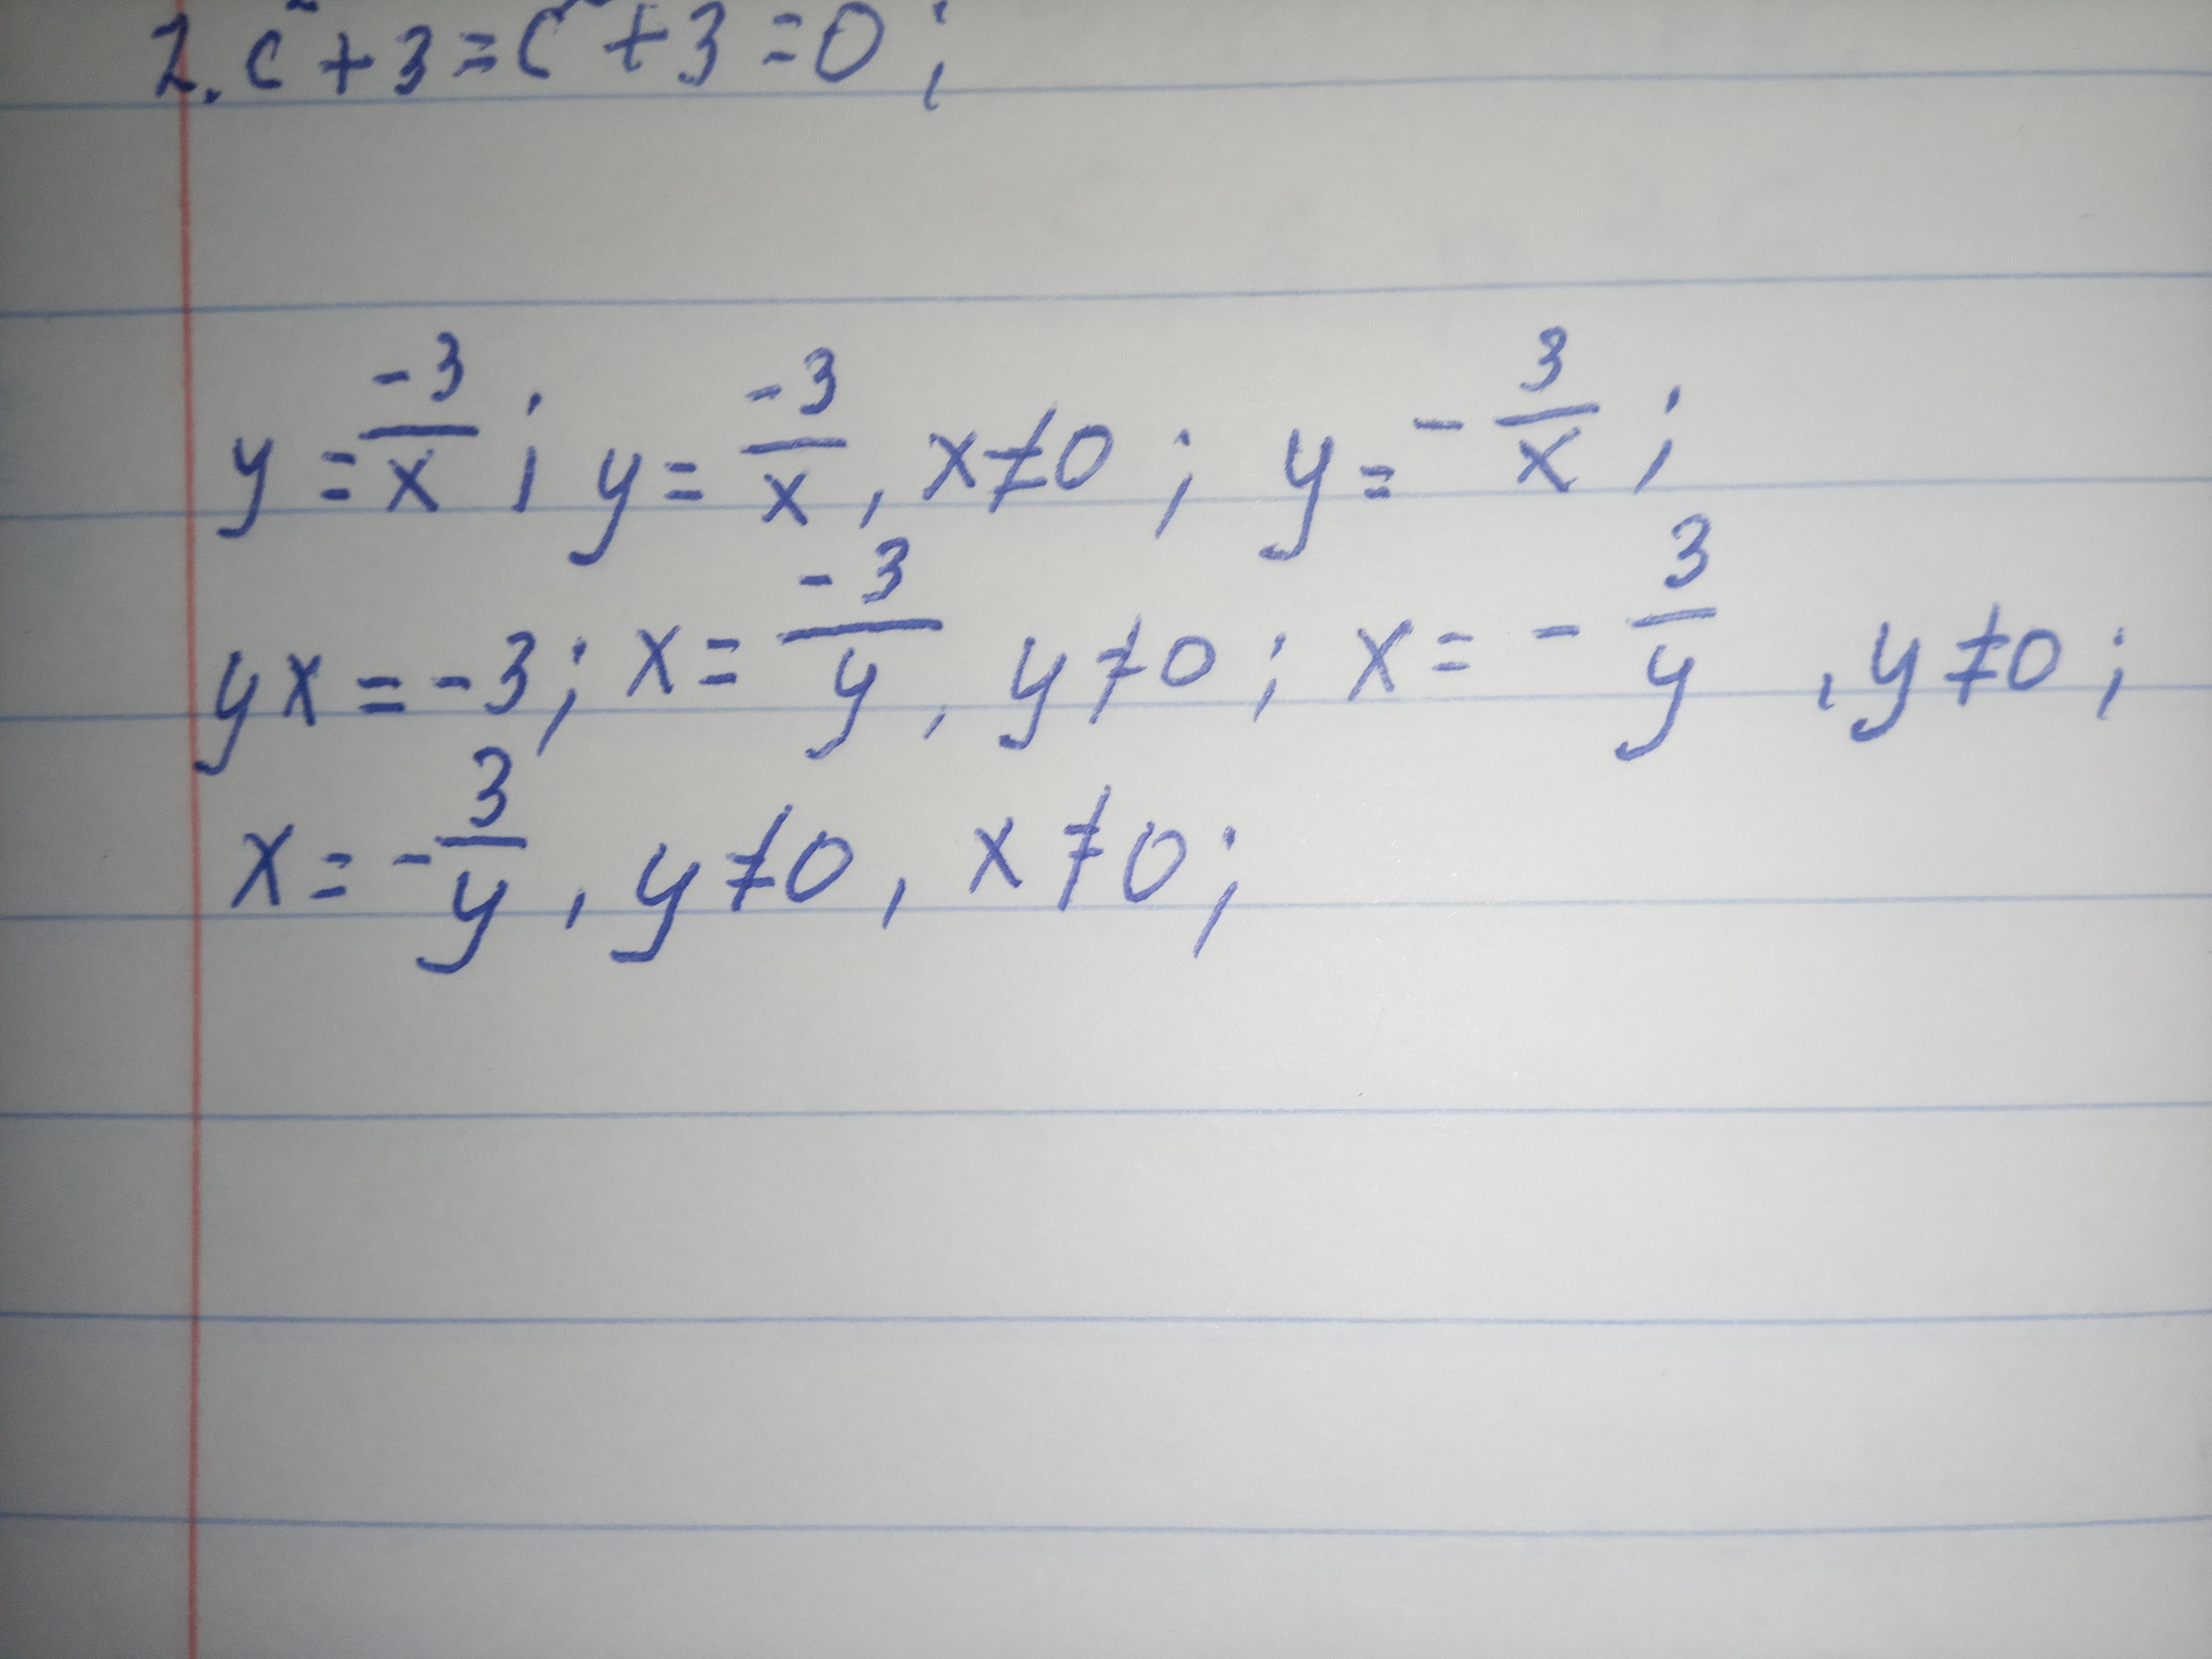 2. c² + 3 = c² + 3 = 0 ;
y = -3/x ; y = -3/x , x ≠ 0 ; y = - 3/x ;
yx = -3 ; x = -3/y , y ≠ 0 ; x = - 3/y , y ≠ 0 ;
x = - 3/y , y ≠ 0 , x ≠ 0 ;